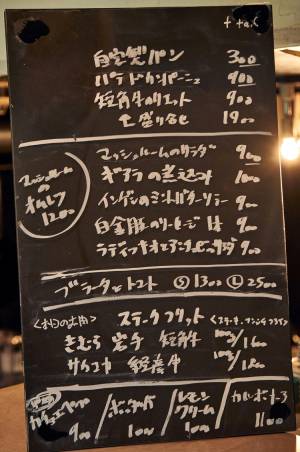 + tax
自家製パン 300
パテドカンパーニュ 900
短角牛のリエット 900
土盛り合せ 1900
マッシュルームのオムレツ 1200
マッシュルームのサラダ 900
ギアラの煮込み 1000
インゲンのミントバターソテー 900
白金豚のソーセージ 1本 900
ラディッキオとアンチョビのサラダ 900
ブラータとトマト Ⓢ1300 Ⓛ2500
ステークフリット
<本日のお肉> <ステーキ・フレンチフライ>
きむら 岩手 短角牛 100g/1600
サカエヤ 経産牛 100g/1800
カチョエペペ 900
ボッタルガ 1000
レモンクリーム 1000
カルボナーラ 1100